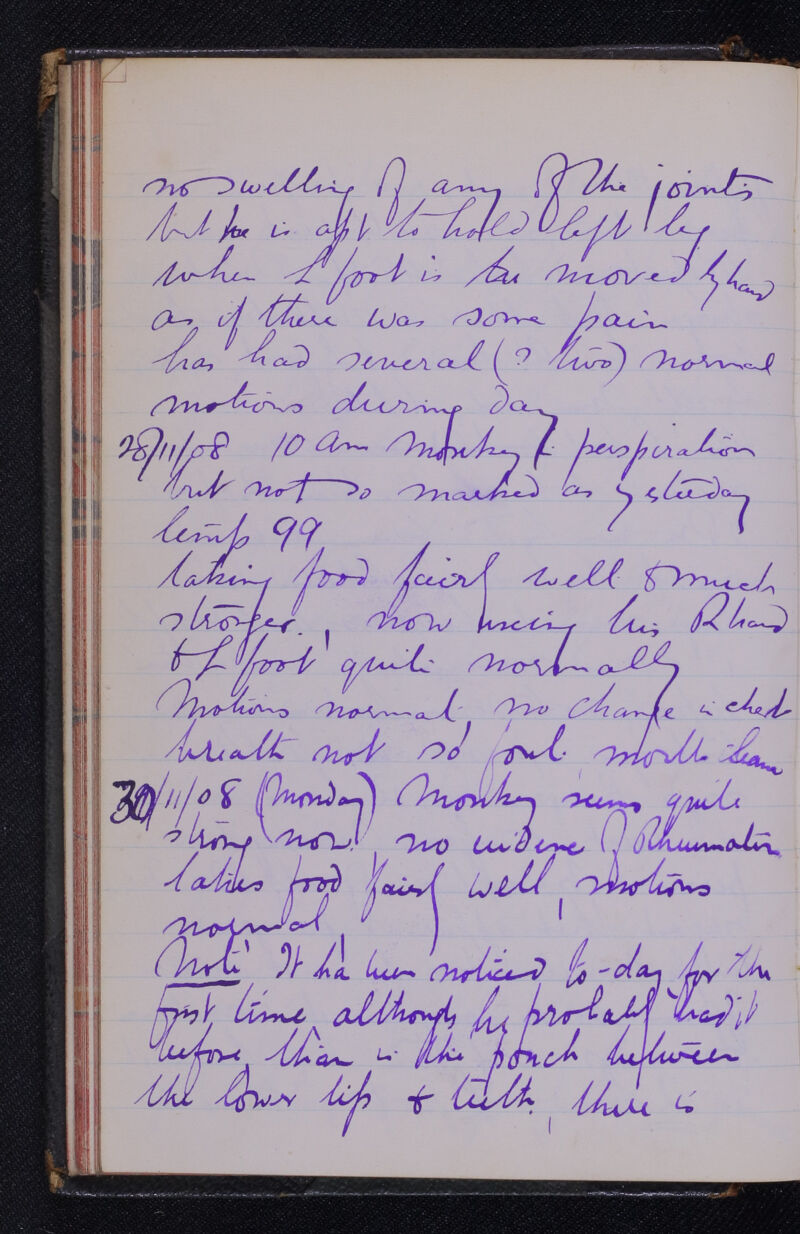 no swelling of any of the joints
but he is apt to hold left leg
when L foot is moved by hand
as if there was some pain
has had several (? two) normal
motions during day
28/11/08 10 am Monkey perspiration
but not so marked as yesterday
temp 99
taking food fairly well & much
stronger, now using his R hand
& L foot quite normally
Motions normal, no change in chest
breath not so foul. mouth clean
30/11/08 (Monday) Monkey seems quite
strong now, no evidence of Rheumatism
takes food fairly well, motions
normal,
Note It has been noticed to-day for the
first time although he probably had it
before, than in the pouch between
the lower lip & teeth, there is